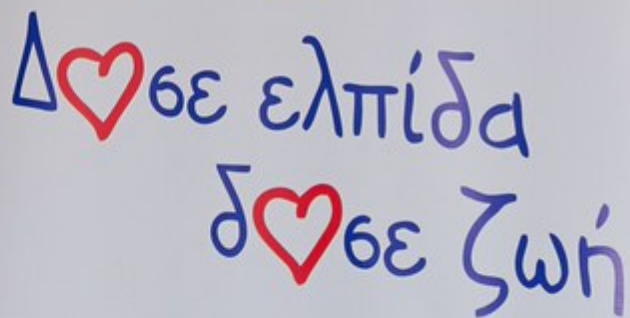 Δ♥σε ελπίδα
δ♥σε ζωή